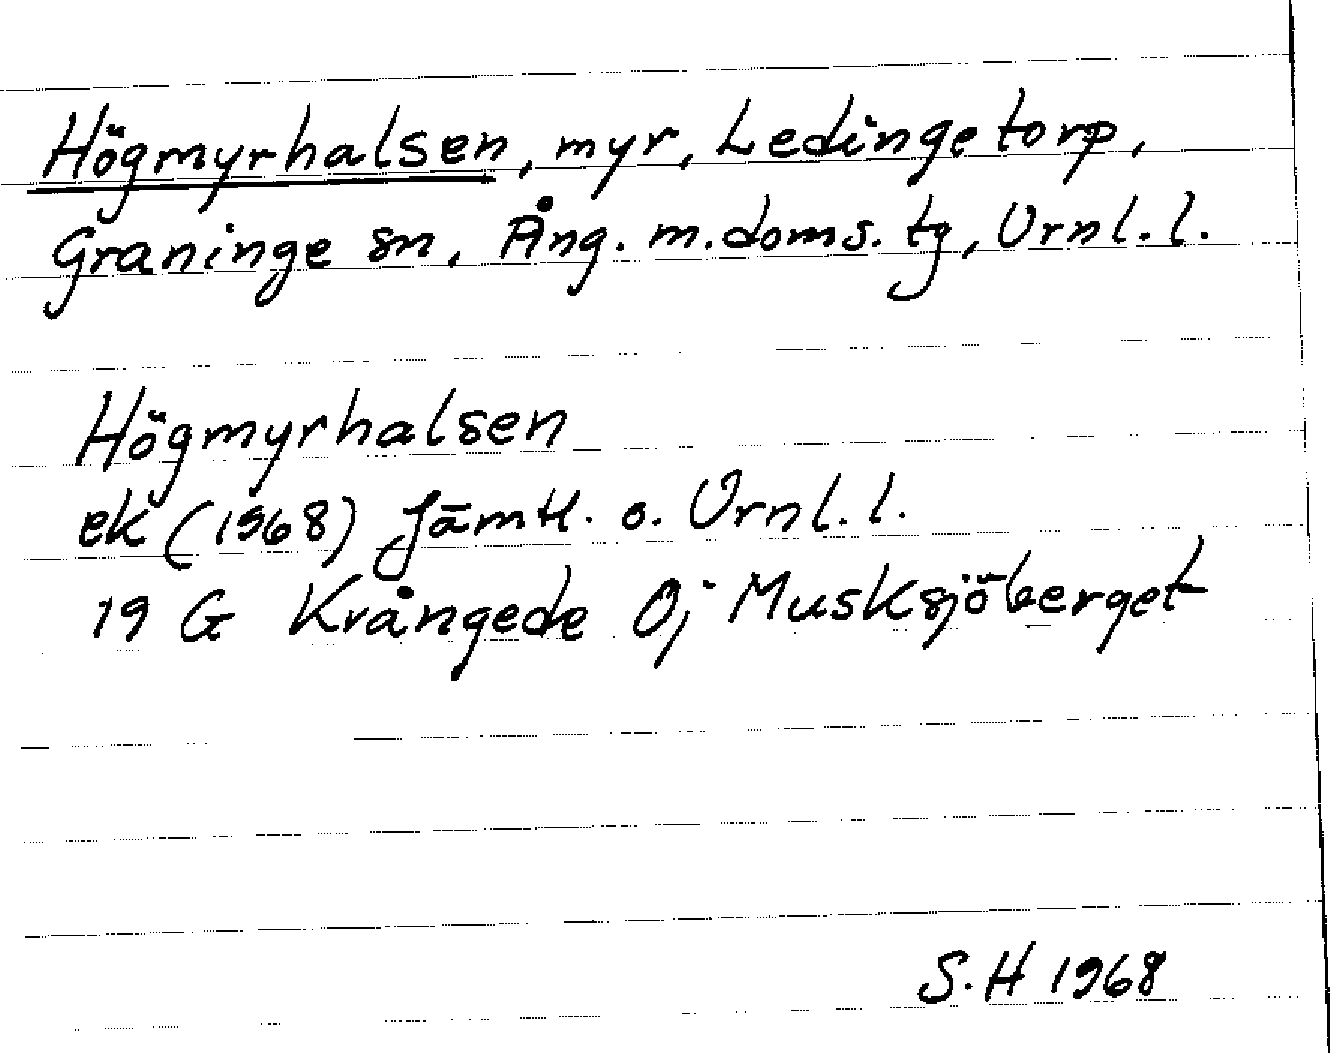 Högmyrhalsen, myr, Ledingetorp,
Graninge sn, Ång. m. doms. tg, Vrnl. l.
Högmyrhalsen
ek (1968) Jämtl. o. Vrnl. l.
19 G Krångede Oj Musksjöberget
S. H 1968